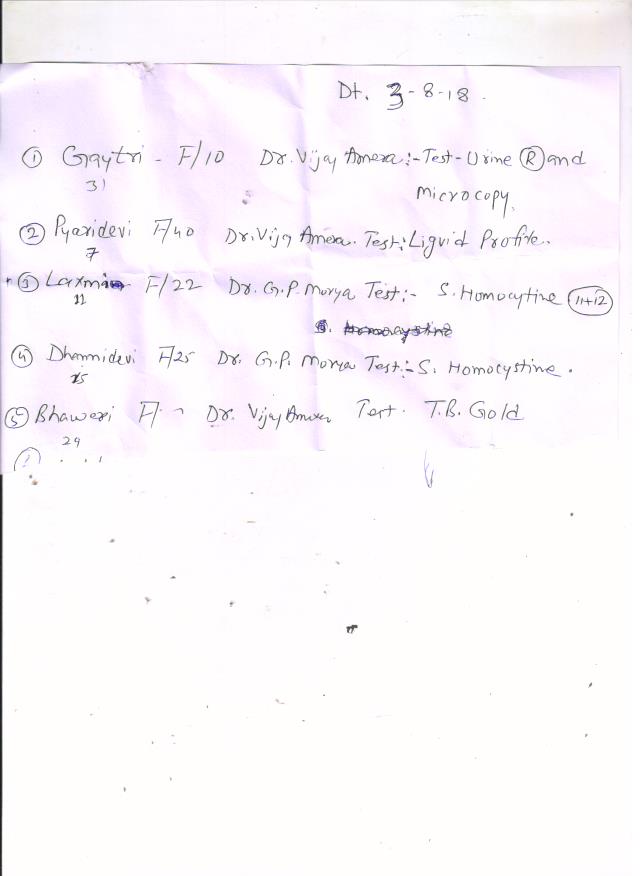 Dt. 3-8-18.
① Gaytri - F/10 Dr. Vijay Amera:- Test - Urine Ⓡ and
31
Microcopy.
② Pyaridevi F/40 Dr. Vijay Amera. Test: Liqvid Profile.
7
③ Laxmi F/22 Dr. G.P. Morya Test:- S. Homocytine (11+12)
11
④ Dhannidevi F/25 Dr. G.P. Morya Test:- S. Homocystine.
15
⑤ Bhaweri F/ Dr. Vijay Amera Test. T.B. Gold
29